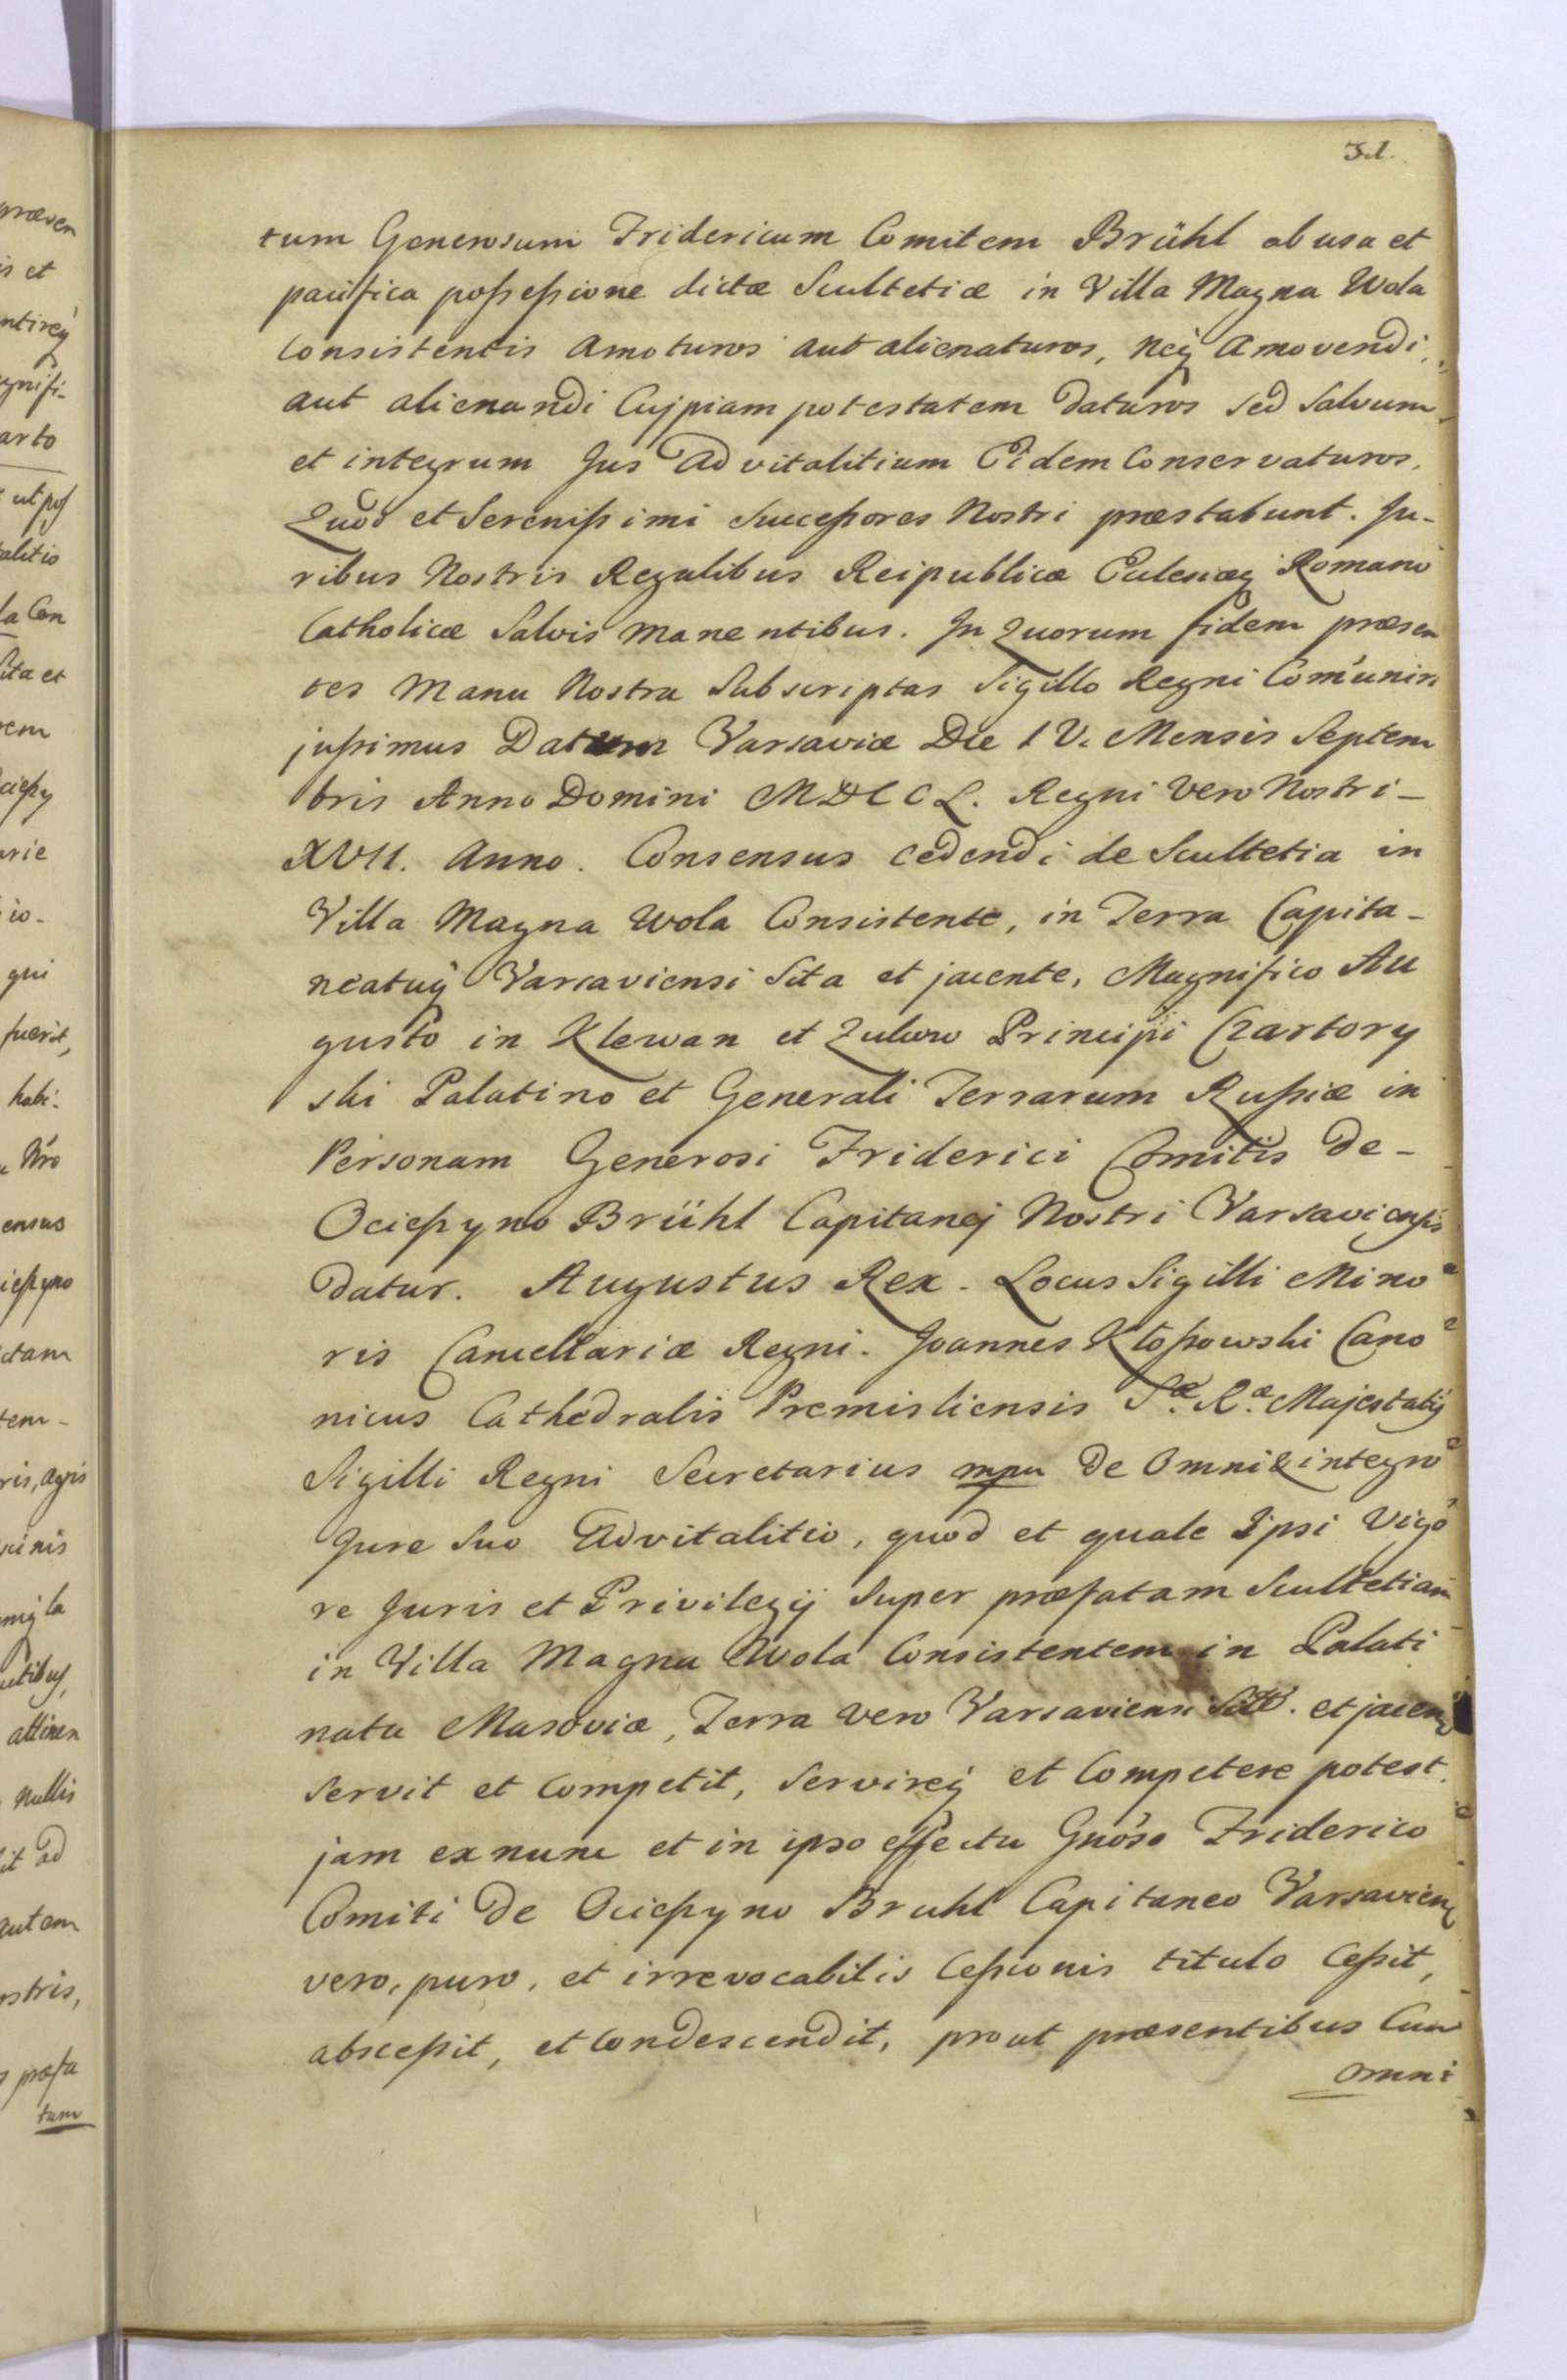 tum Generosum Fridericum Comitem Brühl ab usu et
pacifica poſseſsione dictæ Scultetiæ in Villa Magna Wola
Consistentis Amoturos aut alienaturos, neq́ Amovendi,
aut alienandi Cujpiam potestatem daturos sed Salvum
et integrum Jus Advitalitium Eidem Conservaturos.
Quod et Sereniſsimi Succeſsores Nostri præstabunt. Ju-
ribus Nostris Regalibus Reipublicæ Eclesiæq́ Romano
Catholicæ Salvis manentibus. In Quorum fidem præsen
tes Manu Nostra Subscriptas Sigillo Regni Com̃uniri
juſsimus Datum Varsaviæ Die IV. Mensis Septem
bris Anno Domini MDCCL. Regni Vero Nostri -
XVII. Anno. Consensus cedendi de Scultetia in
Villa Magna Wola Consistente, in Terra Capita-
neatuq́ Varsaviensi Sita et jacente, Magnifico Au
gusto in Klewan et Zukow Principi Czartory
ski Palatino et Generali Terrarum Ruſsiæ in
Personam Generosi Friderici Comitis de -
Ocieſzyno Brühl Capitanej Nostri Varsaviensis
datur. Augustus Rex. Locus Sigilli Mino
ris Cancellariæ Regni. Joannes Kłoſsowski Cano
nicus Cathedralis Premisliensis S.æ R.æ Majestatis
Sigilli Regni Secretarius mpu de Omni & integro
Jure Suo Advitalitio, quod et quale Ipsi Vigo
re Juris et Privilegij Super præfatam Scultetiam
in Villa Magna Wola Consistentem in Palati
natu Masoviæ, Terra vero Varsaviensi et jacen
Servit et Competit, Servireq́ et Competere potest.
jam ex nunc et in ipso effectu Gnõso Friderico
Comiti de Ocieſzyno Bruhl Capitaneo Varsavien
vero, puro, et irrevocabilis Ceſsionis titulo Ceſsit,
absceſsit, et Condescendit, prout præsentibus Cum
omni